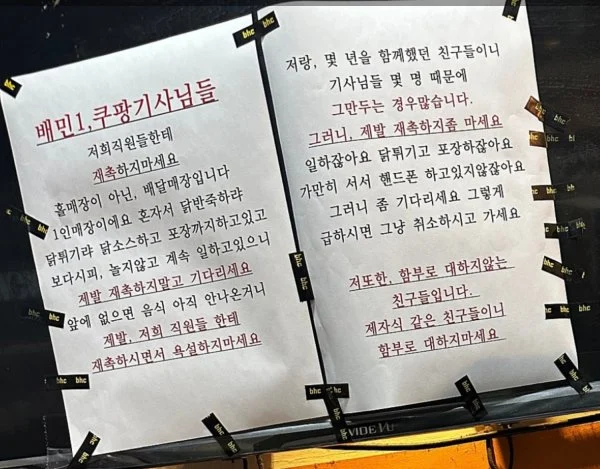 배민1,쿠팡기사님들
저희직원들한테
재촉하지마세요
홀매장이 아닌, 배달매장입니다
1인매장이에요 혼자서 닭반죽하랴
닭튀기랴 닭소스하고 포장까지하고있고
보다시피, 놀지않고 계속 일하고있으니
제발 재촉하지말고 기다리세요
앞에 없으면 음식 아직 안나온거니
제발, 저희 직원들 한테
재촉하시면서 욕설하지마세요
저랑, 몇 년을 함께했던 친구들이니
기사님들 몇 명 때문에
그만두는 경우많습니다.
그러니, 제발 재촉하지좀 마세요
일하잖아요 닭튀기고 포장하잖아요
가만히 서서 핸드폰 하고있지않잖아요
그러니 좀 기다리세요 그렇게
급하시면 그냥 취소하시고 가세요
저또한, 함부로 대하지않는
친구들입니다.
제자식 같은 친구들이니
함부로 대하지마세요
bhc
bhc
bhc
bhc
bhc
bhc
bhc
bhc
bhc
bhc
bhc
bhc